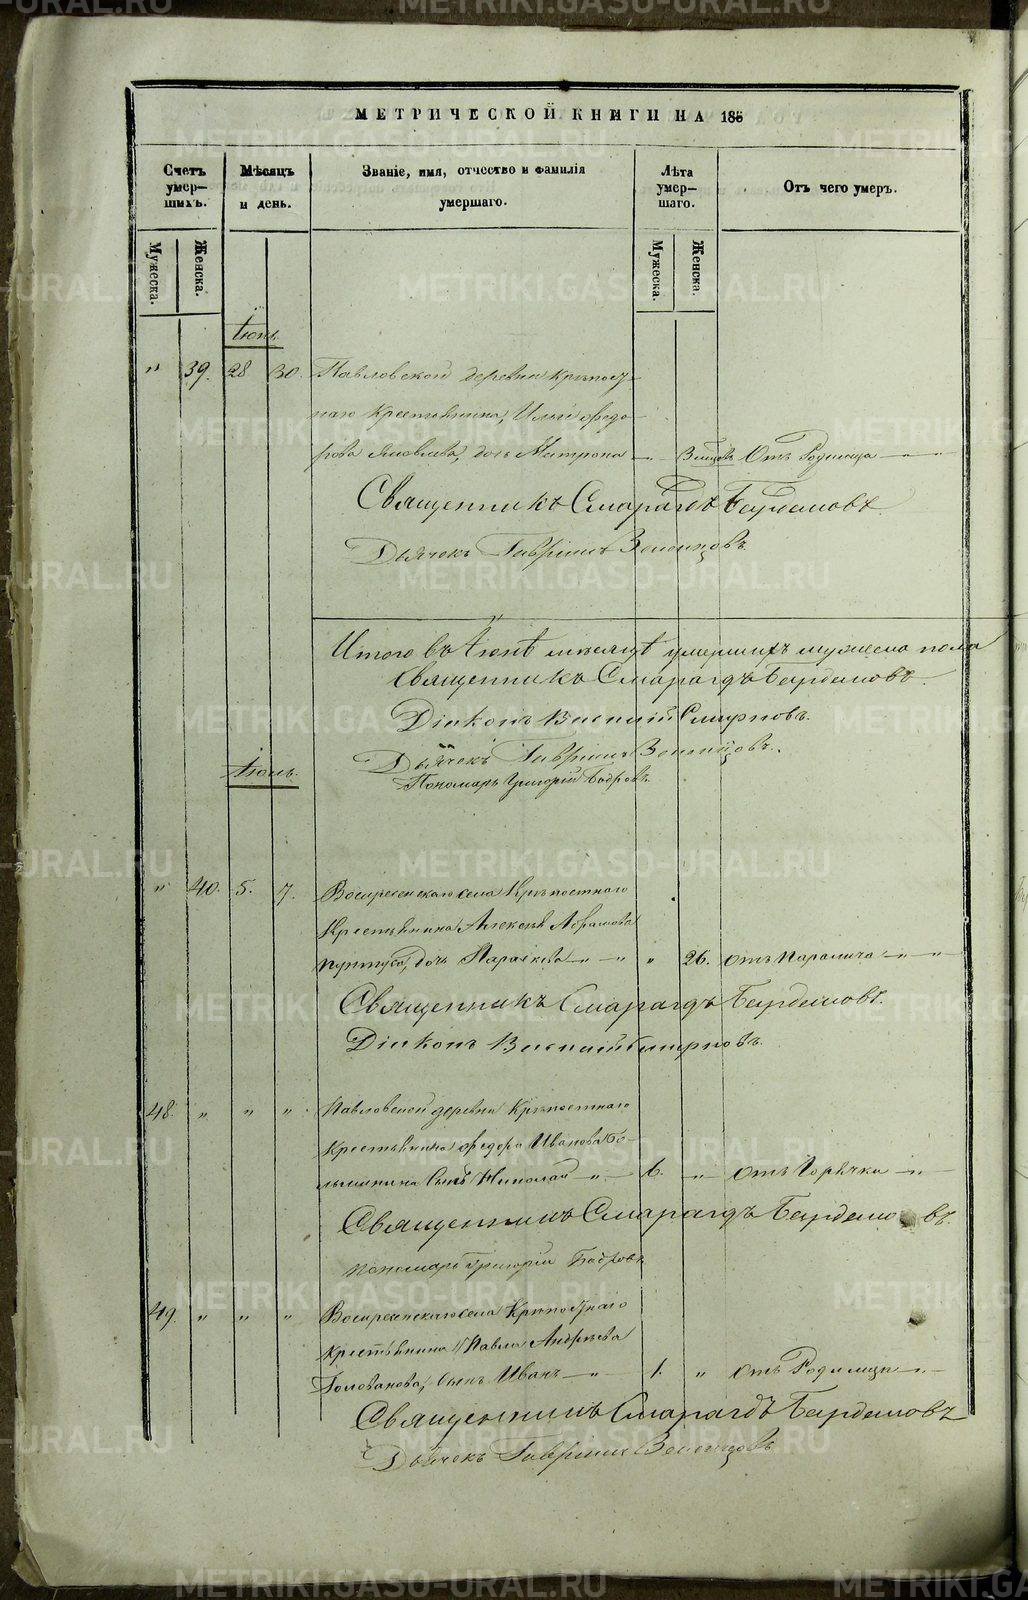 МЕТРИЧЕСКОЙ КНИГИ НА 185
Счетъ умер- шихъ.
Мѣсяцъ и день.
Званіе, имя, отчество и фамилія умершаго.
Лѣта умер- шаго.
Отъ чего умеръ.
Мужеска. Женска.
Мужеска. Женска.
Іюнь.
" 39. 28 30. Павловской деревни крѣпост-
наго крестьянина, Ильи Ѳедо-
рова Яковлева, дочь Матрона — " — 3 мѣсяцовъ Отъ Родимца — " — "
Священникъ Смарагдъ Бардамовъ
Дьячекъ Гавріилъ Зеленцовъ.
Итого въ Іюнѣ мѣсяцѣ умершихъ мужеска пола
Священникъ Смарагдъ Бардамовъ.
Діаконъ Василій Смирновъ.
Дьячекъ Гавріилъ Зеленцовъ.
Пономарь Григорій Бобровъ.
Іюль.
" 40. 5. 7. Воскресенскаго села Крѣпостнаго
Крестьянина Алексѣя Абрамова
дочь Параскева — " — " " 26. отъ Паралича — " — "
Священникъ Смарагдъ Бардамовъ.
Діаконъ Василій Смирновъ.
48. " " " Павловской деревни Крѣпостнаго
Крестьянина Ѳедора Иванова Бо-
сынъ Николай — " — 6. — " — отъ Горячки — " —
Священникъ Смарагдъ Бардамовъ.
Пономарь Григорій Бобровъ
49. " " " Воскресенскаго села Крѣпостнаго
крестьянина Павла Андреева
Голованова, сынъ Иванъ — " — 1. " отъ Родимца — " —
Священникъ Смарагдъ Бардамовъ
Дьячекъ Гавріилъ Зеленцовъ
METRIKI.GASO-URAL.RU